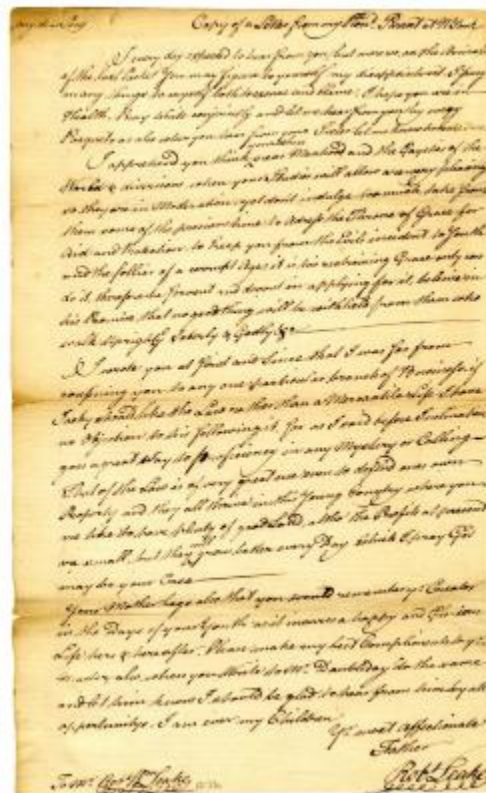 Copy of a Letter from my Hon.d Parent at N York
I every day expected to hear from you but more so, on the Arrival
of the last Packet You may figure to yourself my disappointment I fancy
many things to myself both reasons and blame. I hope you are in
Health. Pray write conjointly and let me hear from you by every
Packet as also when you hear from your Sister let me know
I apprehend you think and the Gayeties of the
World & diversions when your Studies will allow are very pleasing
so they are in Moderation; yet don't indulge too much take from
them some of the precious time to adress the Throne of Grace for
Aid and Protection to keep you from the Evils incident to Youth
and the follies of a corrupt Age; it is his restraining Grace only can
do it, therefore be fervent and devout in applying for it, believe in
his Promise that no good thing will be withheld from them who
walk uprightly Soberly & Godly &c
I wrote you at and since that I was far from
confining you to any one particular branch of Business, if
Jacky should like the Law rather than a Mercantile Life I have
no Objection to his following it for as I said before Inclination
goes a great way to proficiency in any Mystery or Calling
That of the Law is of very great use even to defend our own
Property and they all thrive in this Young Country where you
we like to have plenty of good Land, altho the Profits at present
are small, but they grow better every Day which I pray God
may be your Case
Your Mother begs also that you would remember yr. Creator
in the Days of your Youth as it insures a happy and Glorious
Life here & hereafter. Please make my best Compliments to
also, when you Write to Mr. Doubleday do the same
and let him know I should be glad to hear from him by all
opportunitys. I am ever my Children
Yr. most affectionate
Father
Robt. Leake
To Mr. Leake